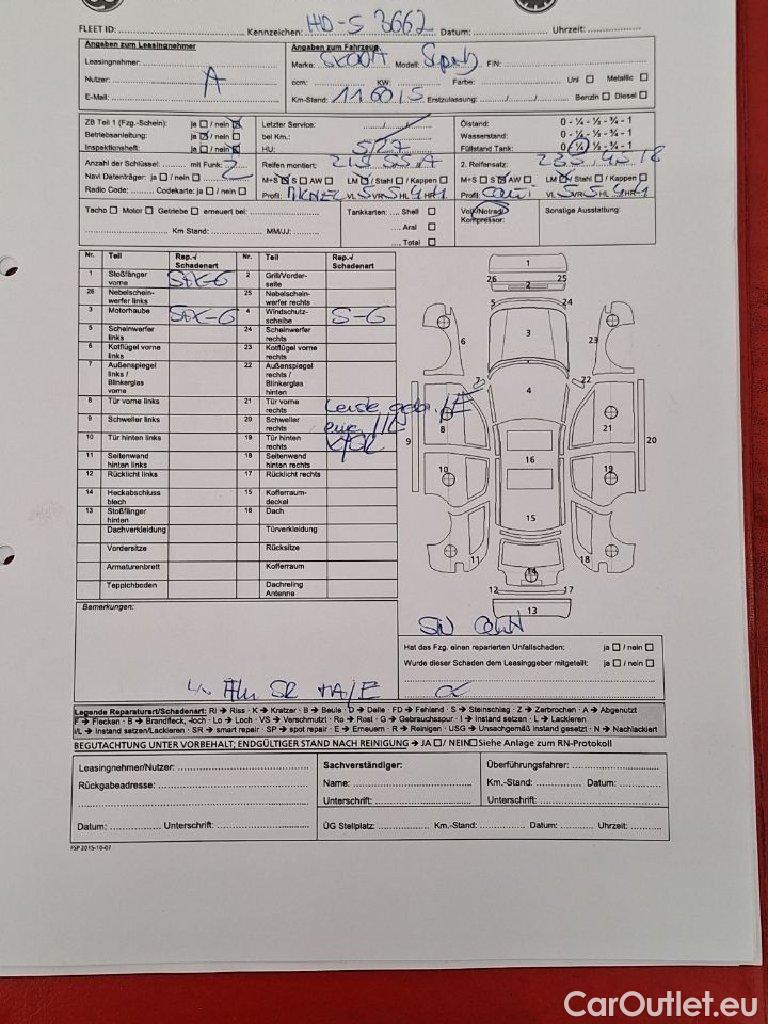 FLEET ID: Kennzeichen: HD-S 3662 Datum: Uhrzeit:
Angaben zum Leasingnehmer
Angaben zum Fahrzeug
Leasingnehmer:
Marke: SKODA Modell: FIN:
Nutzer: A
ccm: KW: Farbe: Uni Metallic
E-Mail:
Km-Stand: Erstzulassung: Benzin Diesel
ZB Teil 1 (Fzg.-Schein): ja / nein
Letzter Service:
Ölstand: 0 - ¼ - ½ - ¾ - 1
Betriebsanleitung: ja / nein
bei Km.:
Wasserstand: 0 - ¼ - ½ - ¾ - 1
Inspektionsheft: ja / nein
HU: 5/27
Füllstand Tank: 0 - ¼ - ½ - ¾ - 1
Anzahl der Schlüssel: mit Funk: 2
Reifen montiert: 215 55
2. Reifensatz: 235 45 18
Navi Datenträger: ja / nein
M+S S AW LM / Stahl / Kappen
M+S S AW LM / Stahl / Kappen
Radio Code: Codekarte: ja / nein
Profil VL 5 VR 5 HL 4 HR 4
Profil VL 5 VR 5 HL 4 HR 4
Tacho Motor Getriebe erneuert bei:
Tankkarten: Shell
Voll/Notrad/
Kompressor:
Sonstige Ausstattung:
Aral
Km Stand: MM/JJ:
Total
Nr. Teil Rep./
Schadenart Nr. Teil Rep./
Schadenart
1 Stoßfänger
vorne 2 Grill/Vorder-
seite
26 Nebelschein-
werfer links 25 Nebelschein-
werfer rechts
3 Motorhaube 4 Windschutz-
scheibe S-G
5 Scheinwerfer
links 24 Scheinwerfer
rechts
6 Kotflügel vorne
links 23 Kotflügel vorne
rechts
7 Außenspiegel
links /
Blinkerglas
vorne 22 Außenspiegel
rechts /
Blinkerglas
hinten
8 Tür vorne links 21 Tür vorne
rechts
9 Schweller links 20 Schweller
rechts
10 Tür hinten links 19 Tür hinten
rechts
11 Seitenwand
hinten links 18 Seitenwand
hinten rechts
12 Rücklicht links 17 Rücklicht rechts
14 Heckabschluss
blech 15 Kofferraum-
deckel
13 Stoßfänger
hinten 16 Dach
Dachverkleidung Türverkleidung
Vordersitze Rücksitze
Armaturenbrett Kofferraum
Teppichboden Dachreling
Antenne
1
26 2 25
5 24
3
6
23
7 22
4
8
21
9
20
16
10
19
15
11
18
14
12 17
13
Bemerkungen:
Hat das Fzg. einen reparierten Unfallschaden: ja / nein
Wurde dieser Schaden dem Leasinggeber mitgeteilt: ja / nein
Legende Reparaturart/Schadenart: RI → Riss · K → Kratzer · B → Beule · D → Delle · FD → Fehlend · S → Steinschlag · Z → Zerbrochen · A → Abgenutzt
F → Flecken · B → Brandfleck, -loch · Lo → Loch · VS → Verschmutzt · Ro → Rost · G → Gebrauchsspur · I → Instand setzen · L → Lackieren
I/L → Instand setzen/Lackieren · SR → smart repair · SP → spot repair · E → Erneuern · R → Reinigen · USG → Unsachgemäß instand gesetzt · N → Nachlackiert
BEGUTACHTUNG UNTER VORBEHALT; ENDGÜLTIGER STAND NACH REINIGUNG → JA / NEIN Siehe Anlage zum RN-Protokoll
Leasingnehmer/Nutzer:
Sachverständiger:
Überführungsfahrer:
Rückgabeadresse:
Name:
Km.-Stand: Datum:
Unterschrift:
Unterschrift:
Datum: Unterschrift:
ÜG Stellplatz: Km.-Stand: Datum: Uhrzeit:
CarOutlet.eu